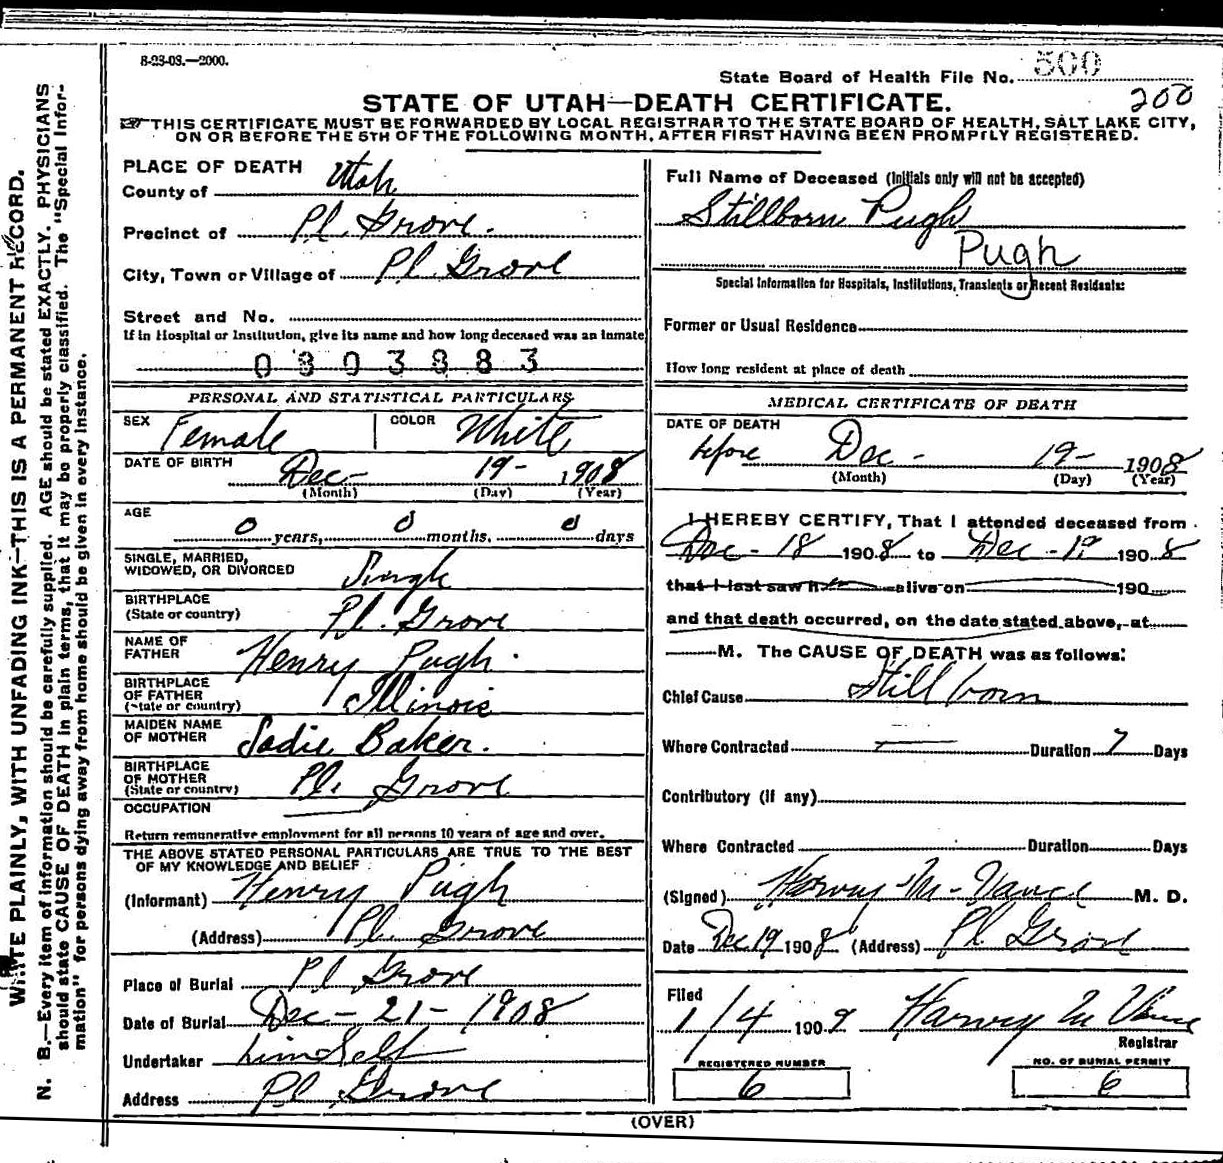 8-23-08.—2000.
State Board of Health File No. 500
200
STATE OF UTAH—DEATH CERTIFICATE.
THIS CERTIFICATE MUST BE FORWARDED BY LOCAL REGISTRAR TO THE STATE BOARD OF HEALTH, SALT LAKE CITY,
ON OR BEFORE THE 5TH OF THE FOLLOWING MONTH, AFTER FIRST HAVING BEEN PROMPTLY REGISTERED.
WRITE PLAINLY, WITH UNFADING INK—THIS IS A PERMANENT RECORD.
N. B.—Every item of information should be carefully supplied. AGE should be stated EXACTLY. PHYSICIANS
should state CAUSE OF DEATH in plain terms, that it may be properly classified. The "Special Infor-
mation" for persons dying away from home should be given in every instance.
PLACE OF DEATH
County of Utah
Precinct of Pl. Grove.
City, Town or Village of Pl Grove
Street and No.
If in Hospital or Institution, give its name and how long deceased was an inmate
0803883
PERSONAL AND STATISTICAL PARTICULARS
SEX Female COLOR White
DATE OF BIRTH Dec- 19- 1908
(Month) (Day) (Year)
AGE
0 years, 0 months, 0 days
SINGLE, MARRIED,
WIDOWED, OR DIVORCED Single
BIRTHPLACE
(State or country) Pl. Grove
NAME OF
FATHER Henry Pugh.
BIRTHPLACE
OF FATHER
(State or country) Illinois
MAIDEN NAME
OF MOTHER Sadie Baker.
BIRTHPLACE
OF MOTHER
(State or country) Pl. Grove
OCCUPATION
Return remunerative employment for all persons 10 years of age and over.
THE ABOVE STATED PERSONAL PARTICULARS ARE TRUE TO THE BEST
OF MY KNOWLEDGE AND BELIEF
(Informant) Henry Pugh
(Address) Pl. Grove
Place of Burial Pl Grove
Date of Burial Dec-21-1908
Undertaker himself
Address Pl Grove
Full Name of Deceased (Initials only will not be accepted)
Stillborn Pugh
Pugh
Special Information for Hospitals, Institutions, Transients or Recent Residents:
Former or Usual Residence
How long resident at place of death
MEDICAL CERTIFICATE OF DEATH
DATE OF DEATH
before Dec- 19- 1908
(Month) (Day) (Year)
I HEREBY CERTIFY, That I attended deceased from
Dec-18 1908 to Dec-19 1908
that I last saw h alive on 190
and that death occurred, on the date stated above, at
M. The CAUSE OF DEATH was as follows:
Chief Cause Still born
Where Contracted — Duration 7 Days
Contributory (if any)
Where Contracted Duration Days
(Signed) Harvey M. Vance M. D.
Date Dec 19 1908 (Address) Pl Grove
Filed
1/4 1909 Harvey M Vance
Registrar
REGISTERED NUMBER
6
NO. OF BURIAL PERMIT
6
(OVER)